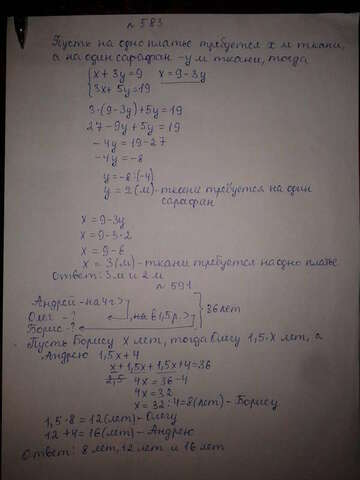 № 583
Пусть на одно платье требуется x м ткани,
а на один сарафан - y м ткани, тогда
{ x + 3y = 9   x = 9 - 3y
{ 3x + 5y = 19
3·(9-3y)+5y = 19
27 - 9y + 5y = 19
-4y = 19 - 27
-4y = -8
y = -8:(-4)
y = 2(м) - ткани требуется на один
сарафан
x = 9 - 3y
x = 9 - 3·2
x = 9 - 6
x = 3(м) - ткани требуется на одно платье.
Ответ: 3 м и 2 м
№ 591
Андрей - на 4 г >
Олег - ? , на в 1,5 р. > } 36 лет
Борис - ?
Пусть Борису x лет, тогда Олегу 1,5·x лет, а
Андрею 1,5x + 4
x + 1,5x + 1,5x + 4 = 36
2,5 4x = 36 - 4
4x = 32
x = 32 : 4 = 8(лет) - Борису
1,5 · 8 = 12(лет) - Олегу
12 + 4 = 16(лет) - Андрею
Ответ: 8 лет, 12 лет и 16 лет